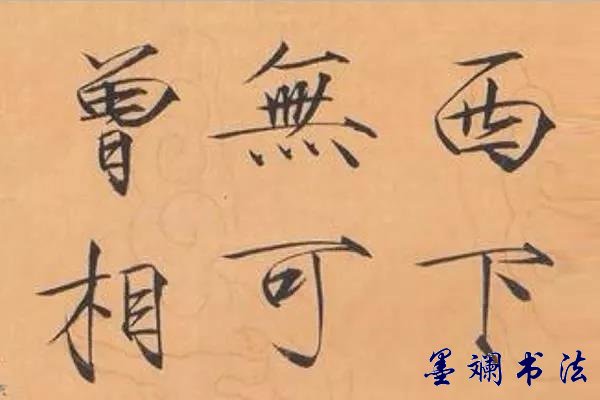 西下
無可
曾相
墨斓书法